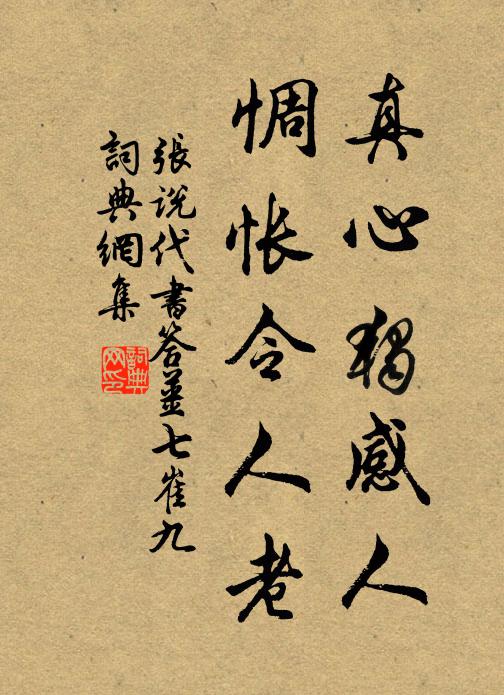 真心独感人
惆怅令人老
張说代書答姜七崔九
詞典網集
詞典网印